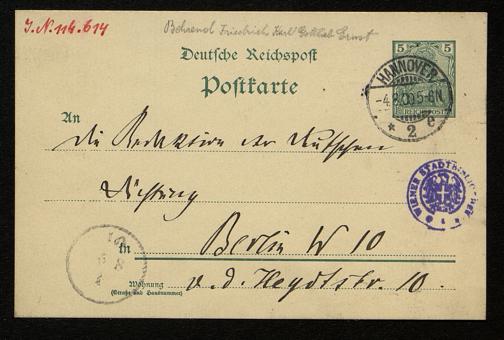 J.N. 116.614
Behrend Friedrich Karl Gottlieb Ernst
Deutsche Reichspost
Postkarte
5 5
REICHSPOST
HANNOVER
-4.8.00 5-6N.
* 2 e
An
die Redaktion der Deutschen
Dichtung
WIENER STADTBIBLIOTHEK
in Berlin W 10
Wohnung v. d. Heydtstr. 10.
(Straße und Hausnummer)